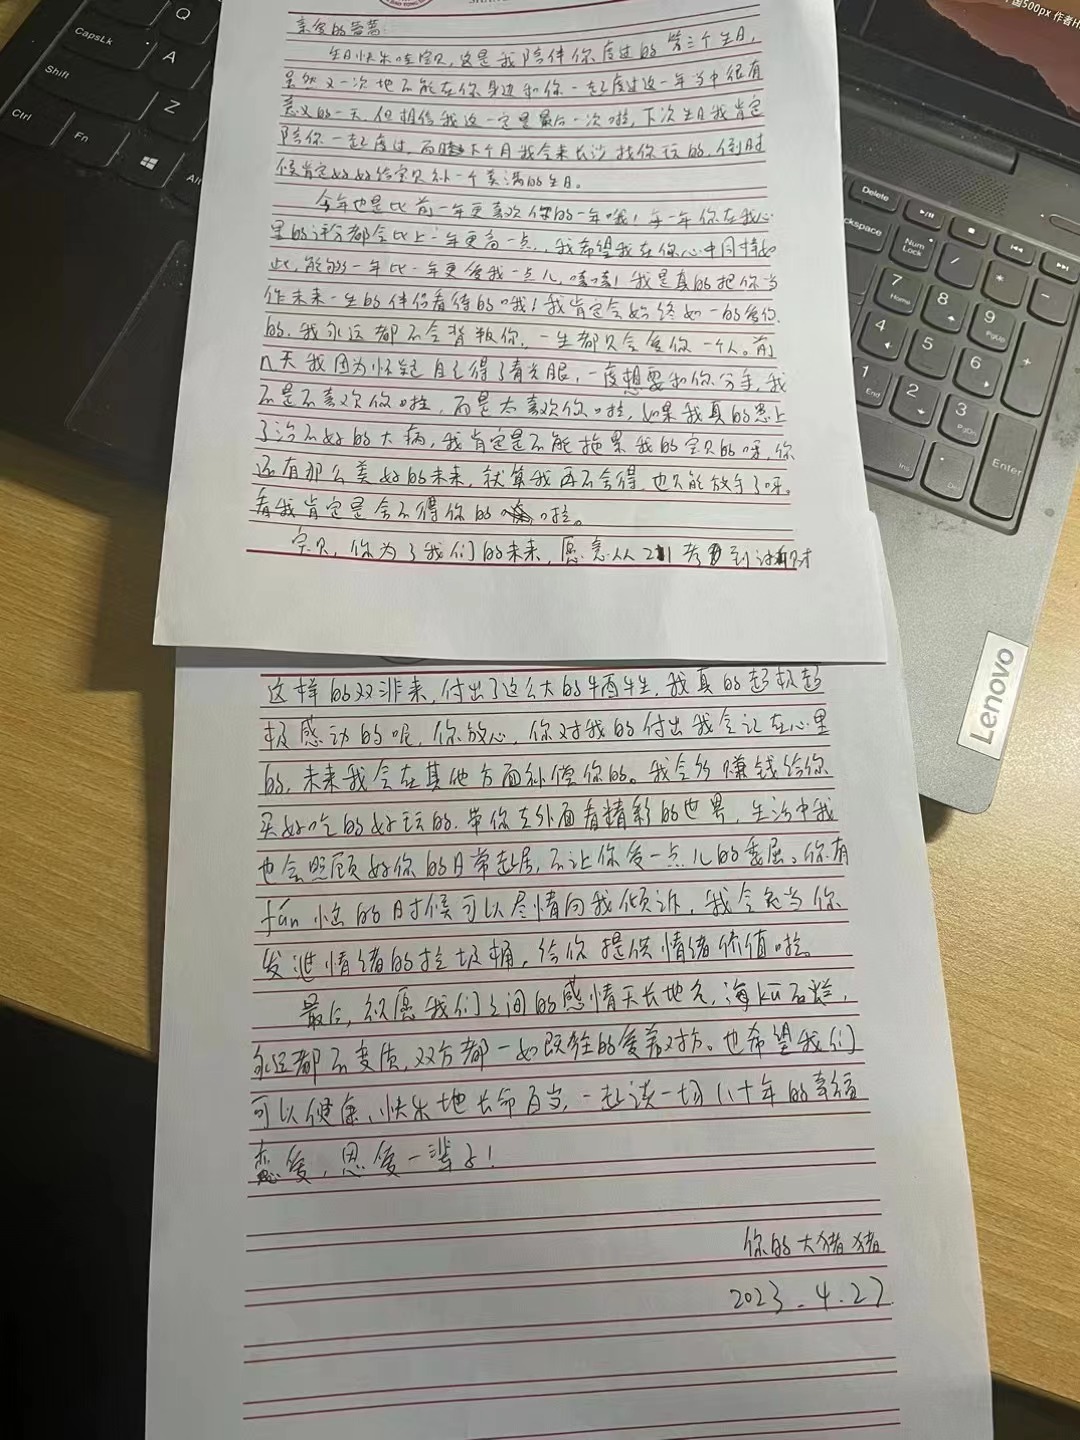 CapsLk
Q
A
Shift
Z
Ctrl
Fn
Alt
国500px 作者H
SHAN
亲爱的蓉蓉:
生日快乐哇宝贝,这是我陪伴你度过的第三个生日,
虽然又一次地不能在你身边和你一起度过这一年当中很有
意义的一天,但相信我这一定是最后一次啦,下次生日我肯定
陪你一起度过,而且下个月我会来长沙找你玩的,到时
候肯定好好给宝贝补一个美满的生日。
今年也是比前一年更喜欢你的一年哦!每一年你在我心
里的评分都会比上一年更高一点,我希望我在你心中同样如
此,能够一年比一年更爱我一点儿,嘻嘻!我是真的把你当
作未来一生的伴侣看待的哦!我肯定会始终如一的爱你
的,我永远都不会背叛你,一生都只会爱你一个人。前
几天我因为怀疑自己得了青光眼,一度想要和你分手,我
不是不喜欢你啦,而是太喜欢你啦,如果我真的患上
了治不好的大病,我肯定是不能拖累我的宝贝的呀,你
还有那么美好的未来,就算我再不舍得,也只能放手了呀。
看我肯定是舍不得你的啦。
宝贝,你为了我们的未来,愿意从211考到
这样的双非来,付出了这么大的牺牲,我真的超极超
极感动的呢,你放心,你对我的付出我会记在心里
的,未来我会在其他方面补偿你的。我会多赚钱给你
买好吃的好玩的,带你去外面看精彩的世界,生活中我
也会照顾好你的日常起居,不让你受一点儿的委屈。你有
fán恼的时候可以尽情向我倾诉,我会充当你
发泄情绪的垃圾桶,给你提供情绪价值啦。
最后,祝愿我们之间的感情天长地久,海kū石烂,
永远都不变质,双方都一如既往的爱着对方。也希望我们
可以健康、快乐地长命百岁,一起谈一场八十年的幸福
恋爱,恩爱一辈子!
你的大猪猪
2023.4.27
Delete
Backspace
Num Lock
/
*
-
7 Home
8
9 PgUp
+
4
5
6
1 End
2
3 PgDn
Enter
Ins
Del
Lenovo